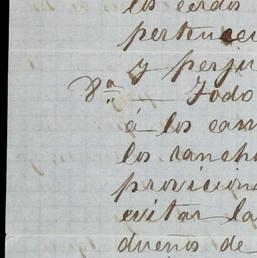 los cerdos
pertenec
y perju
8ª Todo
á los cam
los rancho
provicion
evitar la
dueños de